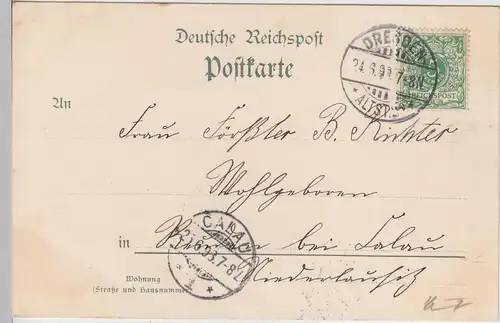 Deutsche Reichspost
Postkarte
DRESDEN
24.6.93.7-8N.
* ALTST.
REICHSPOST
An
Frau Förster B. Richter
Wohlgeboren
in bei Calau
CALAU
7-8
Niederlausitz
Wohnung
(Straße und Hausnummer)